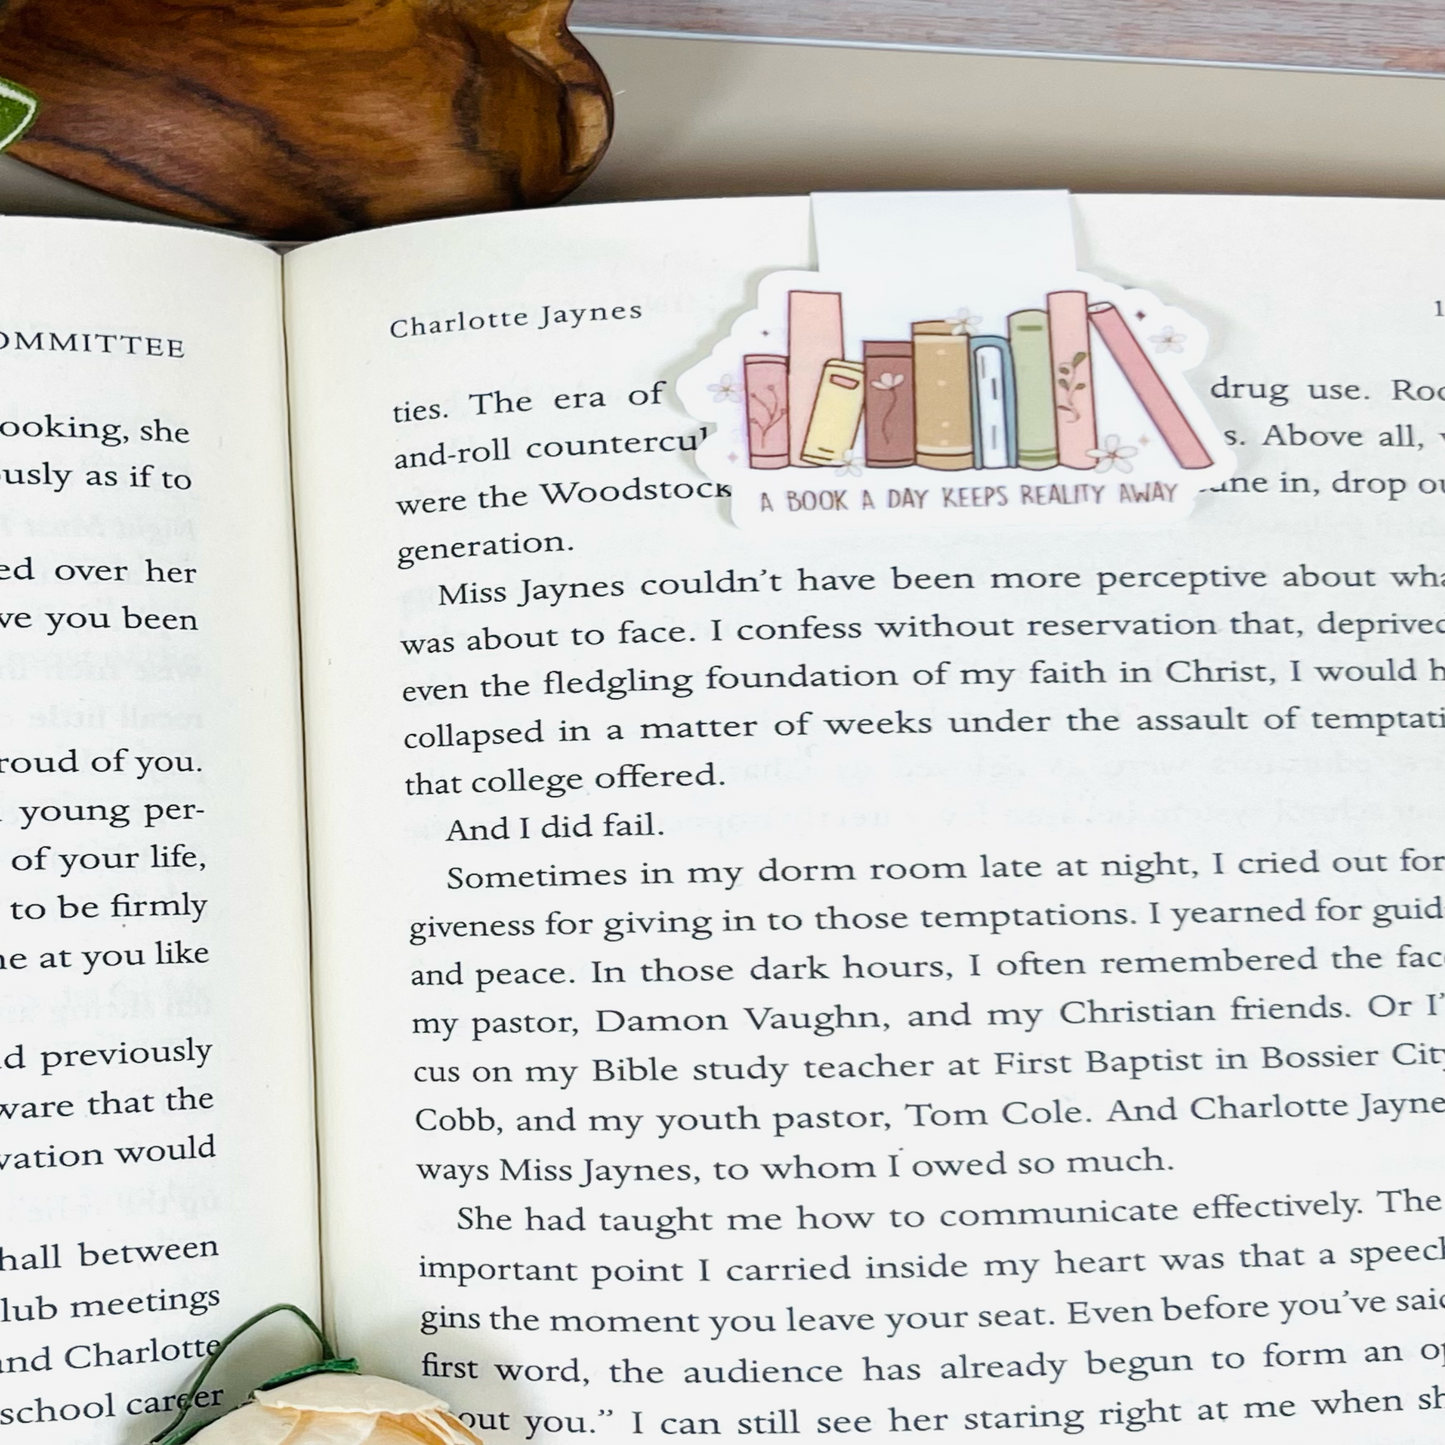 OMMITTEE
ooking, she
ously as if to
ed over her
ve you been
roud of you.
young per-
of your life,
to be firmly
ne at you like
d previously
ware that the
vation would
hall between
lub meetings
and Charlotte
school career
Charlotte Jaynes
1
ties. The era of
drug use. Roc
and-roll countercul
s. Above all,
were the Woodstock
une in, drop ou
generation.
A BOOK A DAY KEEPS REALITY AWAY
Miss Jaynes couldn’t have been more perceptive about wha
was about to face. I confess without reservation that, deprived
even the fledgling foundation of my faith in Christ, I would h
collapsed in a matter of weeks under the assault of temptati
that college offered.
And I did fail.
Sometimes in my dorm room late at night, I cried out for
giveness for giving in to those temptations. I yearned for guid
and peace. In those dark hours, I often remembered the fac
my pastor, Damon Vaughn, and my Christian friends. Or I’
cus on my Bible study teacher at First Baptist in Bossier City
Cobb, and my youth pastor, Tom Cole. And Charlotte Jayne
ways Miss Jaynes, to whom I owed so much.
She had taught me how to communicate effectively. The
important point I carried inside my heart was that a speech
gins the moment you leave your seat. Even before you’ve said
first word, the audience has already begun to form an op
out you.” I can still see her staring right at me when sh